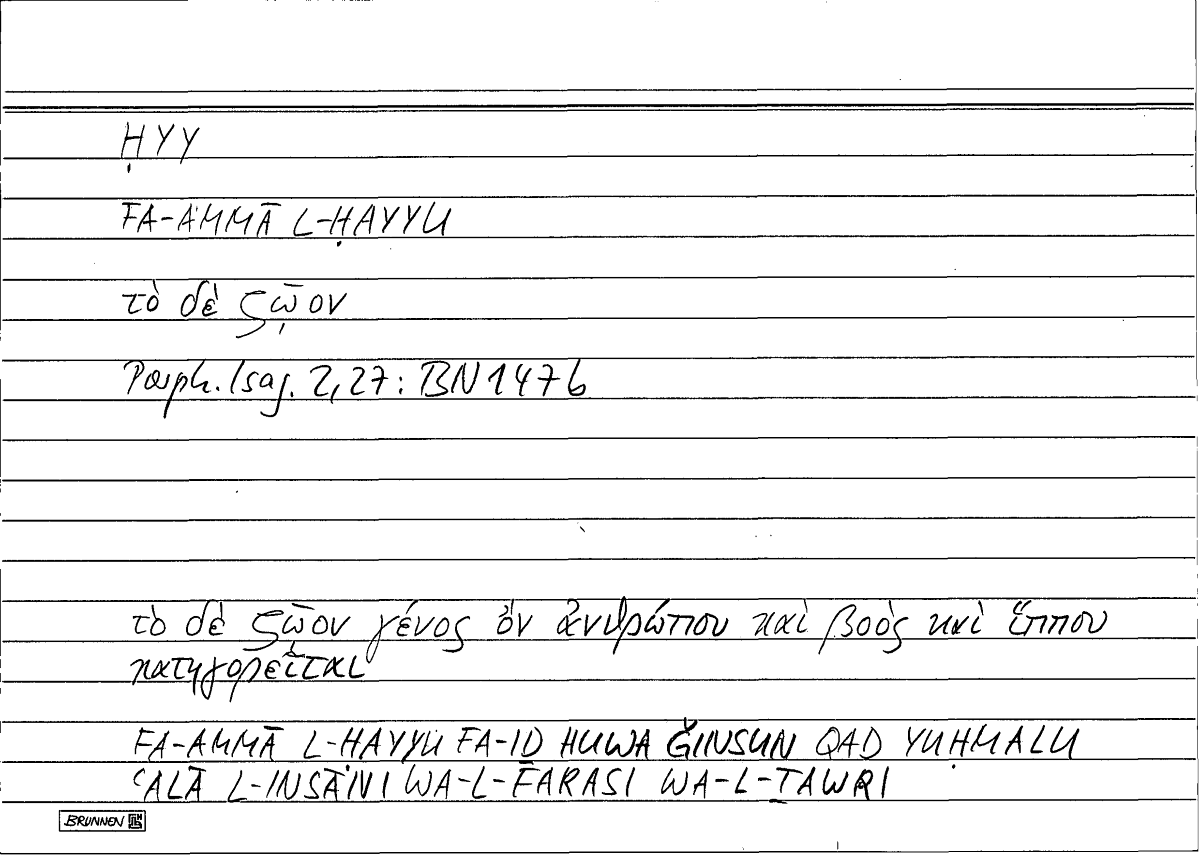 ḤYY
FA-AMMĀ L-ḤAYYU
τὸ δὲ ζῷον
Porph. Isag. 2,27: BN 147b
τὸ δὲ ζῷον γένος ὂν ἀνθρώπου καὶ βοὸς καὶ ἵππου
κατηγορεῖται
FA-AMMĀ L-ḤAYYU FA-ID HUWA ǦINSUN QAD YUḤMALU
ʿALĀ L-INSĀNI WA-L-FARASI WA-L-ṮAWRI
BRUNNEN